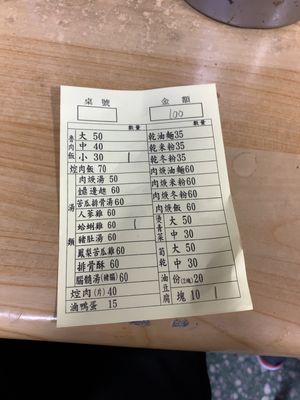 桌號 金額
100
數量 數量
魯肉飯 大 50
中 40
小 30 1
焢肉飯 70
湯類 肉焿湯 50
苦瓜排骨湯60
人蔘雞 60
蛤蜊雞 60 1
豬肚湯 60
鳳梨苦瓜雞60
排骨酥 60
腦髓湯(豬腦)60
焢肉(片) 40
滷鴨蛋 15
乾油麵35
乾米粉35
乾冬粉35
肉焿油麵60
肉焿米粉60
肉焿冬粉60
肉焿飯 60
燙青菜 大 50
中 30
筍乾 大 50
中 30
油豆腐 份 20
塊 10 1